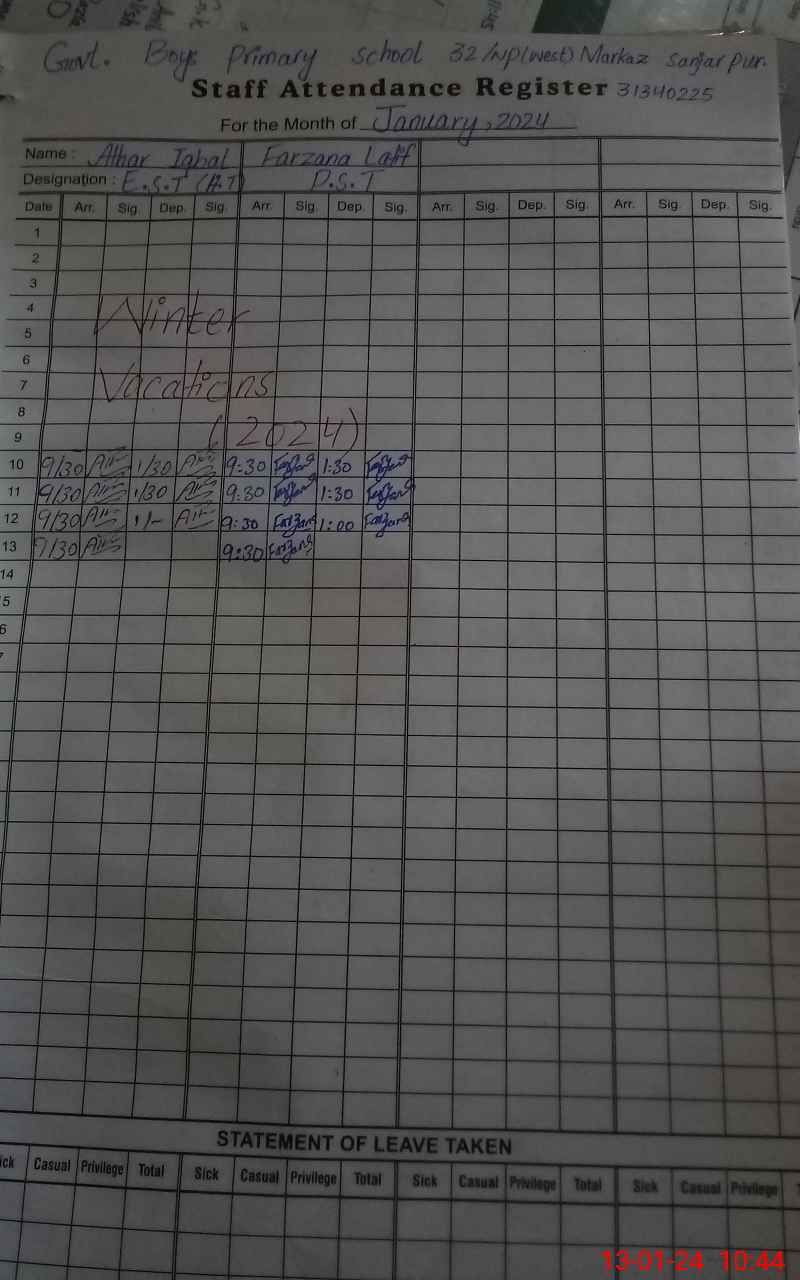 Govt. Boys Primary School 32/NP(West) Markaz Sanjar Pur.
Staff Attendance Register 31340225
For the Month of January, 2024
Name : Athar Iqbal Farzana Latif
Designation : E.S.T (A.T) P.S.T
Date Arr. Sig. Dep. Sig. Arr. Sig. Dep. Sig. Arr. Sig. Dep. Sig. Arr. Sig. Dep. Sig.
1
2
3
4 Winter
5
6
7 Vacations
8
9 (2024)
10 9/30 1/30 9:30 Farzana 1:30 Farzana
11 9/30 1/30 9:30 Farzana 1:30 Farzana
12 9/30 1/- 9:30 Farzana 1:00 Farzana
13 9/30 9:30 Farzana
14
5
6
7
STATEMENT OF LEAVE TAKEN
ick Casual Privilege Total Sick Casual Privilege Total Sick Casual Privilege Total Sick Casual Privilege T
13-01-24 10:44